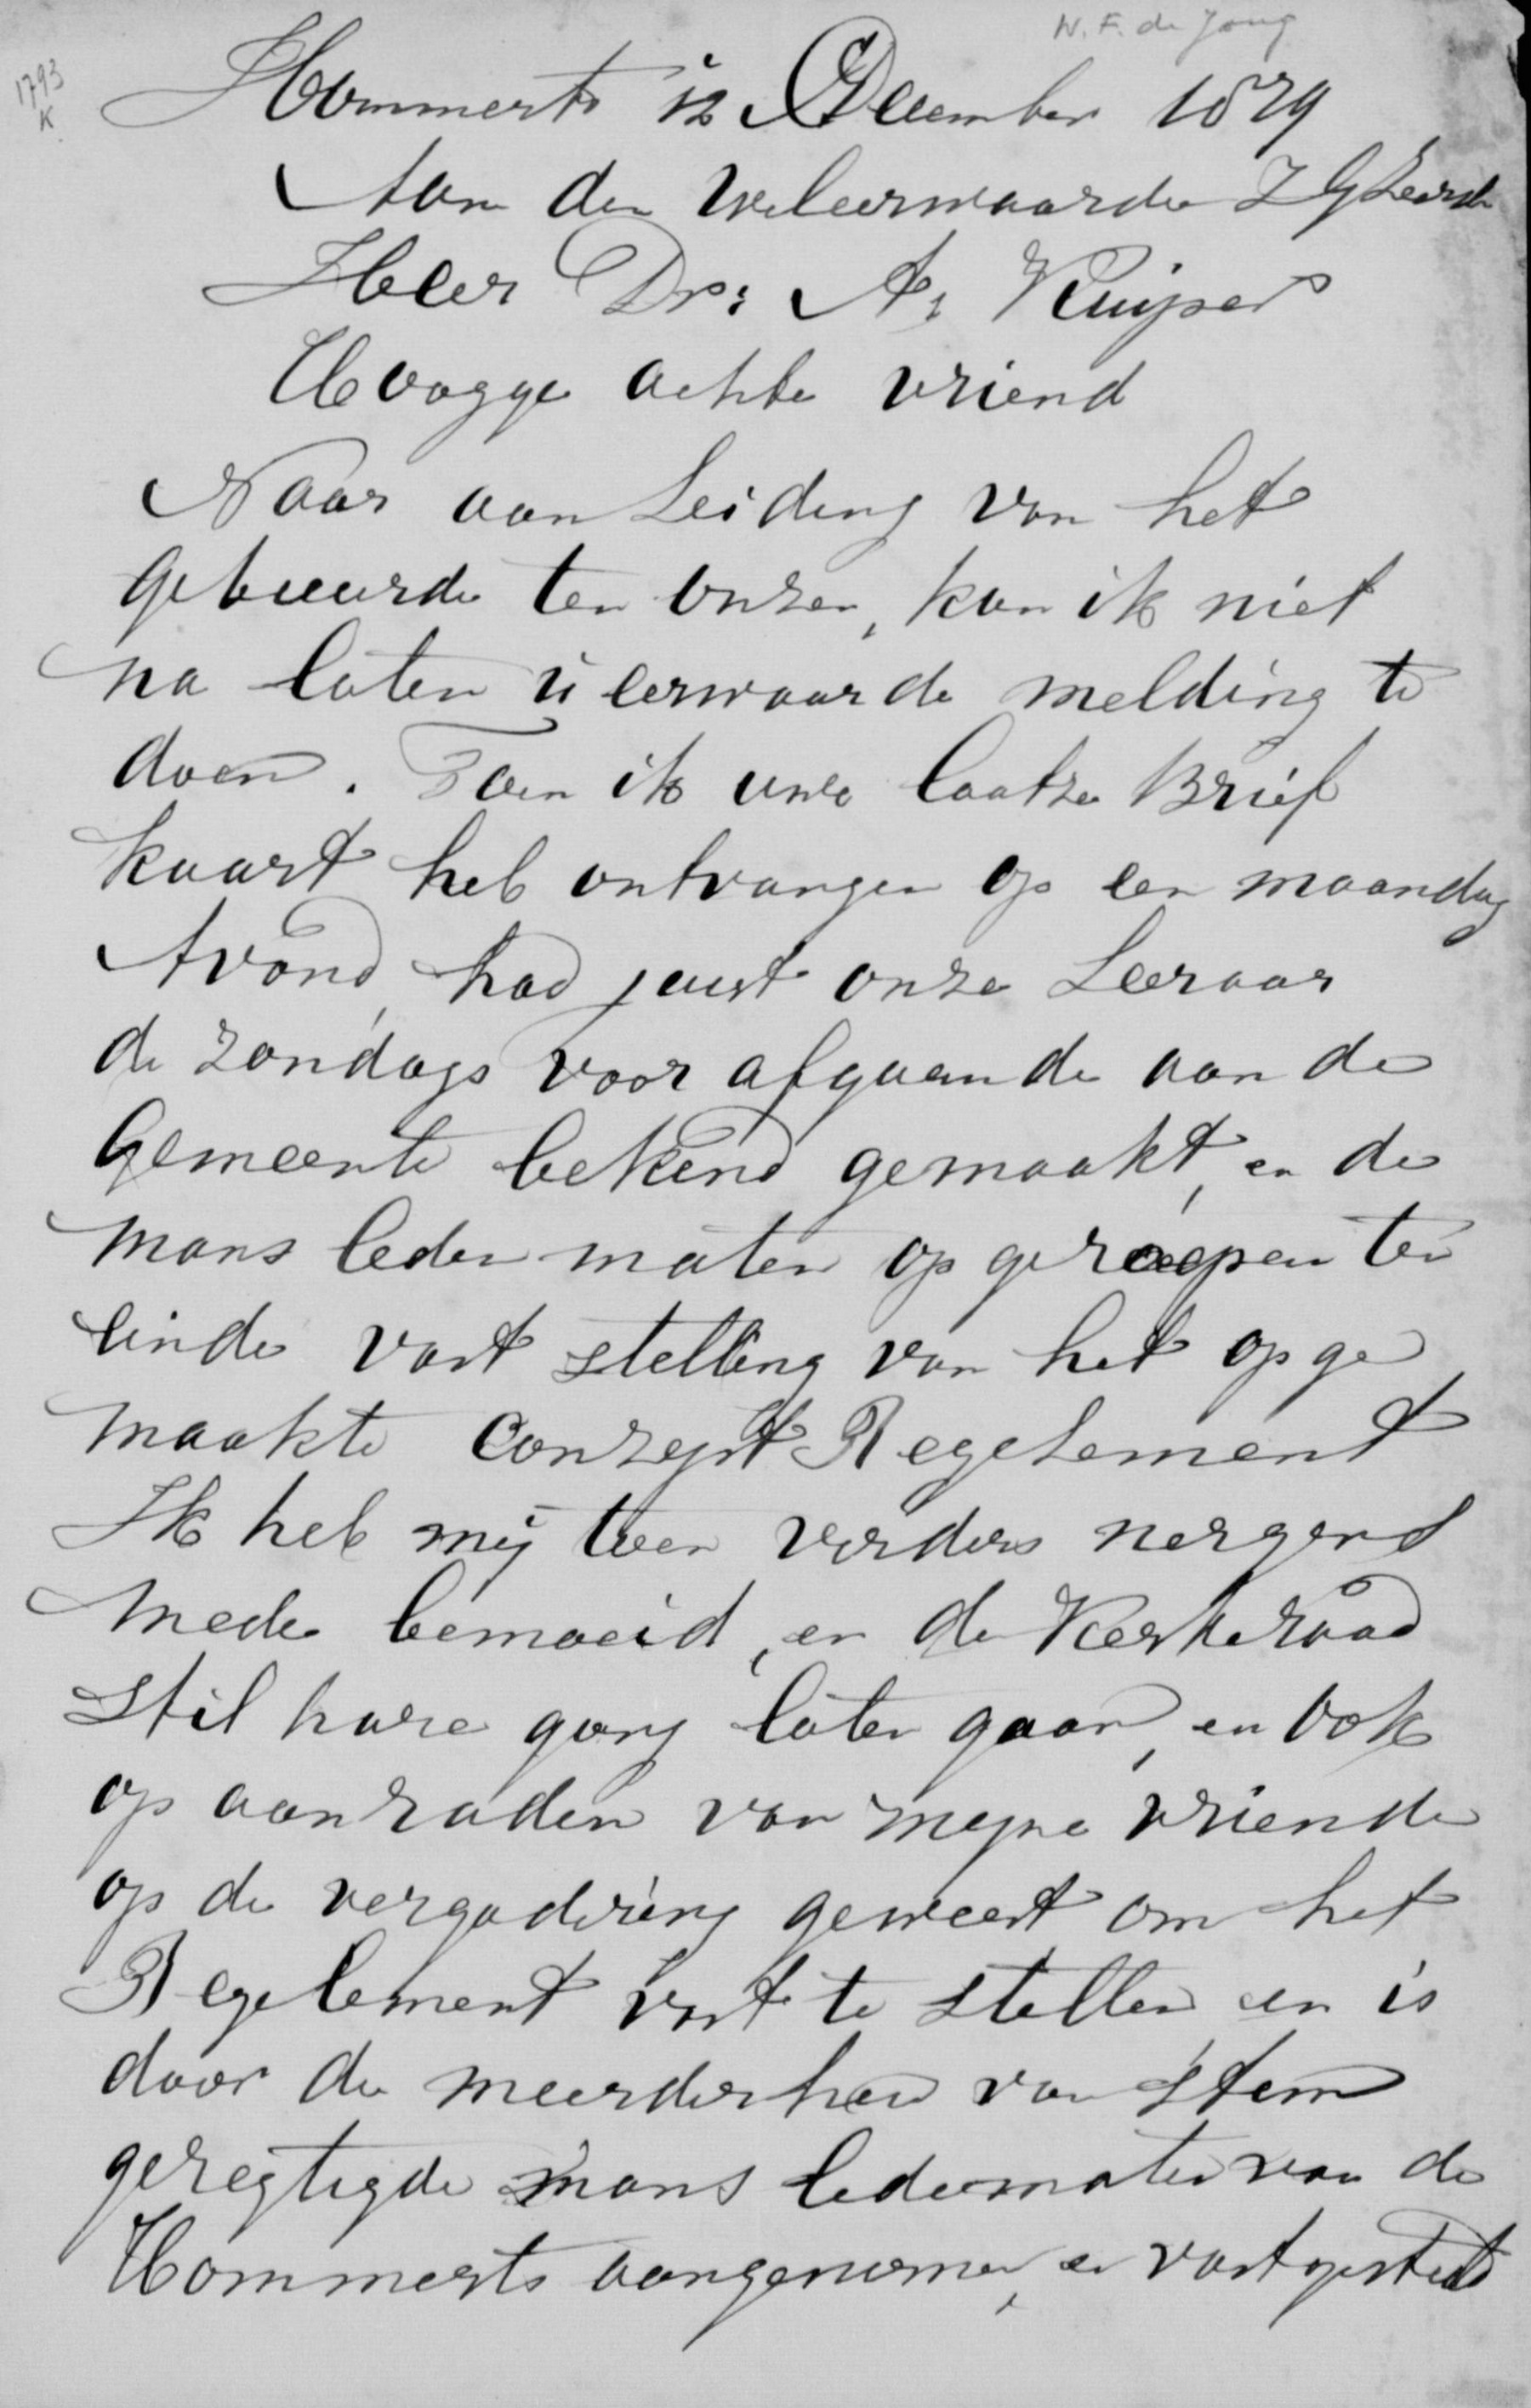 W. F. de Jong
1793
K
Hommerts 12 December 1879
Aan den Weleerwaarde Z G Leerde
Heer Dr: A, Kuijper
Hoogge achte vriend
Naar aan Leiding van het
gebeurde ten onzen, kan ik niet
na laten u eerwaarde melding te
doen. Toen ik uwe laatze Brief
kaart heb ontvangen op een maandag
Avond, had juist onze Leeraar
de zondags voor afgaande aan de
Gemeente bekend gemaakt, en de
mans leden maten op geroepen ten
einde vast stelling van het op ge
maakte Conzept Regelement
Ik heb mij toen verders nergens
mede bemoeid, en de Kerkeraad
stil hare gang laten gaan, en ook
op aanraden van mijne vriende
op de vergadering geweest om het
Regelement vast te stellen en is
door de meerderheid van stem
geregtigde mans ledematen van de
Hommerts aangenomen, en vastgesteld